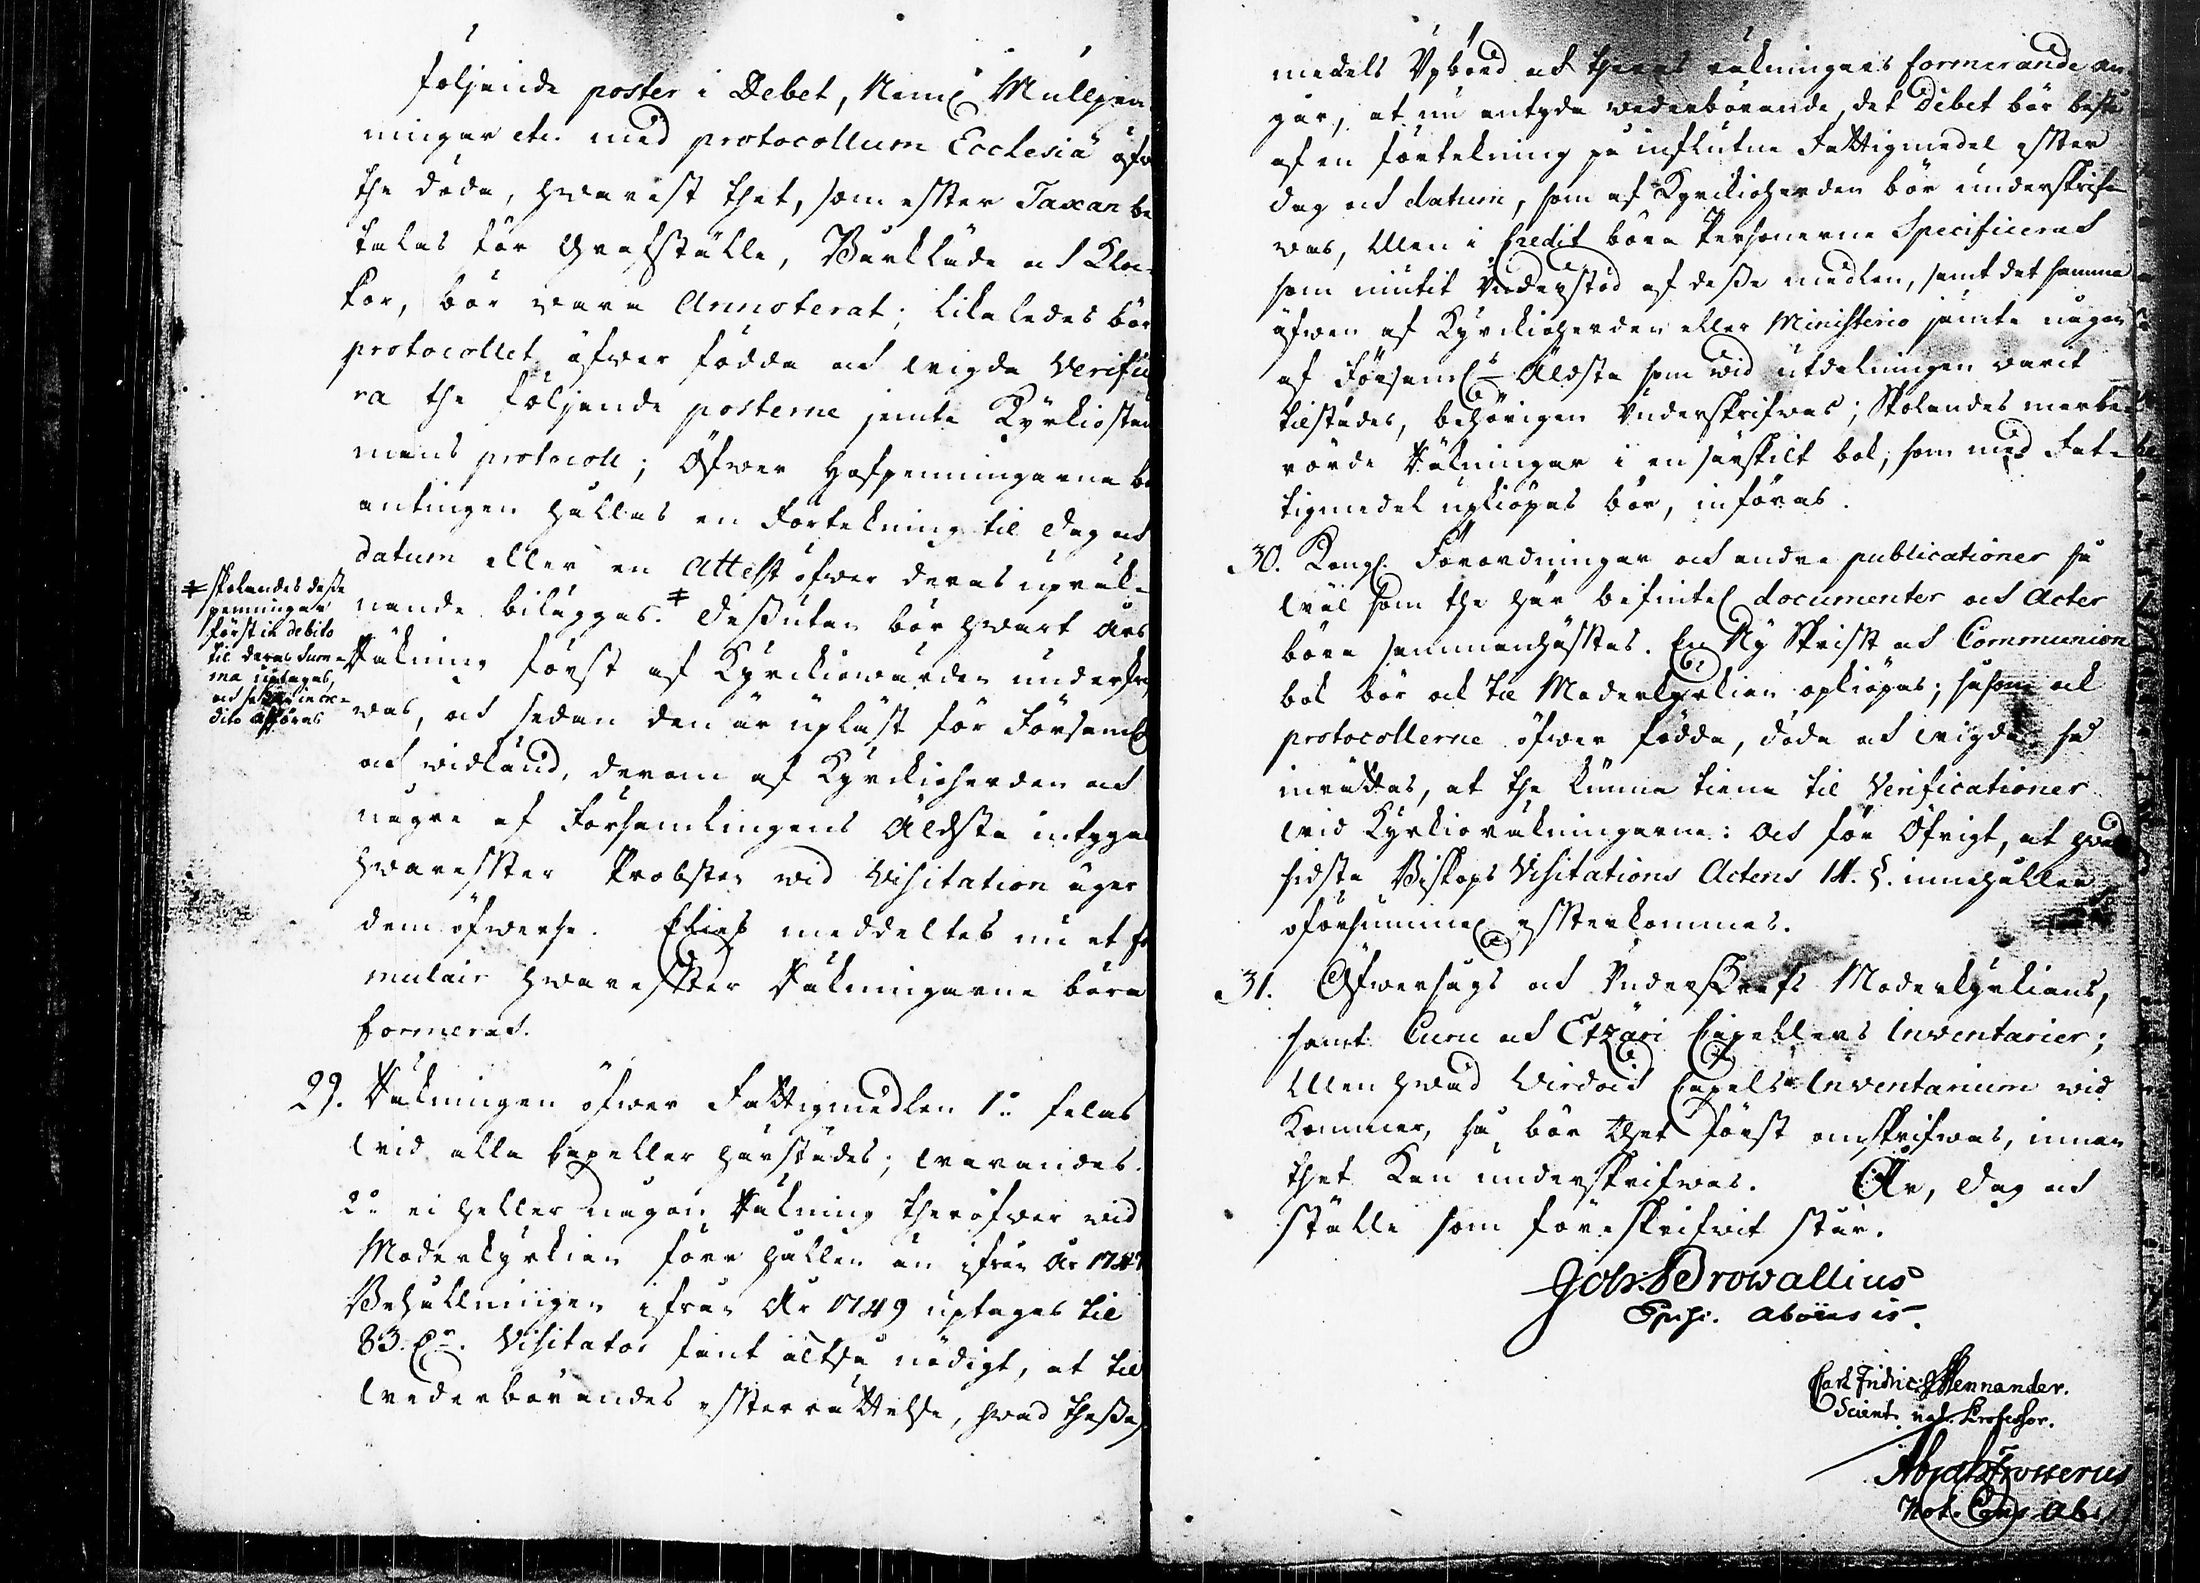 följande poster i Debet, Neml. Mullpen-
ningar etc. med protocollum Ecclesiæ öfw
the döda, hwarest thet, som effter Taxan be
talas för Grafställe, Bårkläde och Kloc-
kor, bör wara Annoterat; likaledes bör
protocollet öfwer födda och wigda Verifice
ra the följande posterne jemte Kyrkiostem
mans protocoll; Öfwer Håfpenningarna bö
antingen hållas en Förtekning til dag och
datum eller en Attest öfwer deras upräk-
nande biläggas.# Dessutan bör hwart års
Räkning först af Kyrkiowärden underskrif
was, och sedan den är upläst för Församl.
och widkänd, derom af Kyrkioherden och
någre af Församlingens Äldsta intygas
hwareffter Probsten wid Visitation äger
dem öfwerse. Eliest meddeltes nu et for
mulair hwareffter Räkningarne böra
formeras.
# skolandes desse
penningar
först in debito
til deras Sum-
ma uptagas,
och sedan in cre-
dito afföras
29. Räkningen öfwer Fattigmedlen 1:o felas
wid alla Capeller härstädes; warandes
2:o ei heller någon Räkning theröfwer wid
Moderkyrkian förr hållen än ifrån År 1747
Behållningen ifrån År 1749 uptages til
83. Visitator fant altså nödigt, at til
wederbörandes effterrättelse, hwad thessa
medels Upbörd och theras räkningars formerande an
går, at nu antyda wederbörande, det Debet bör bestå
af en förtekning på influtne Fattigmedel effter
dag och datum, som af Kyrkioherden bör underskrif-
was, Men i Credit böra Personerne Specificeras
som niutit Understöd af desse medlen, samt det samma
äfwen af Kyrkioherden eller Ministerio jämte någon
af Församl:s Äldsta som wid utdelningen warit
tilstädes, behörigen Underskrifwas; Skolandes merbe-
rörde Räkningar i en särskilt bok, som med Fat-
tigmedel upkiöpas bör, införas.
30. Kongl. Förordningar och andra publicationer så
wäl som the här befintel. documenter och Acter
böra sammanhäfftas. En Ny Skrifft och Communion
bok bör ock til Moderkyrkian opkiöpas; såsom ock
protocollerne öfwer födda, döda och wigda så
inrättas, at the kunna tiena til Verificationer
wid Kyrkioräkningarne: Och för Öfrigt, at hwad
sidsta Biskops Visitations Actens 14. §. innehåller
oförsummel. effterkommes.
31. Öfwersågs och Underskrefs Moderkyrkians,
samt Curu och Etzäri Capellers Inventarier;
Men hwad Virdois Capells Inventarium wid
Kommer, så bör thet först omskrifwas, innan
thet Kan underskrifwas. År, dag och
ställe som föreskrifwit står.
Joh. Browallius
Episc. aboensis.
Carl Fridric: Mennander.
Scient. nat. Professor.
Abrah Frosterus
Not. Cons Abo